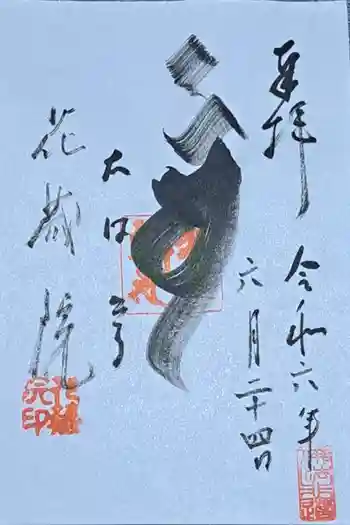 奉拝
令和六年
六月二十四日
大日尊
花蔵院